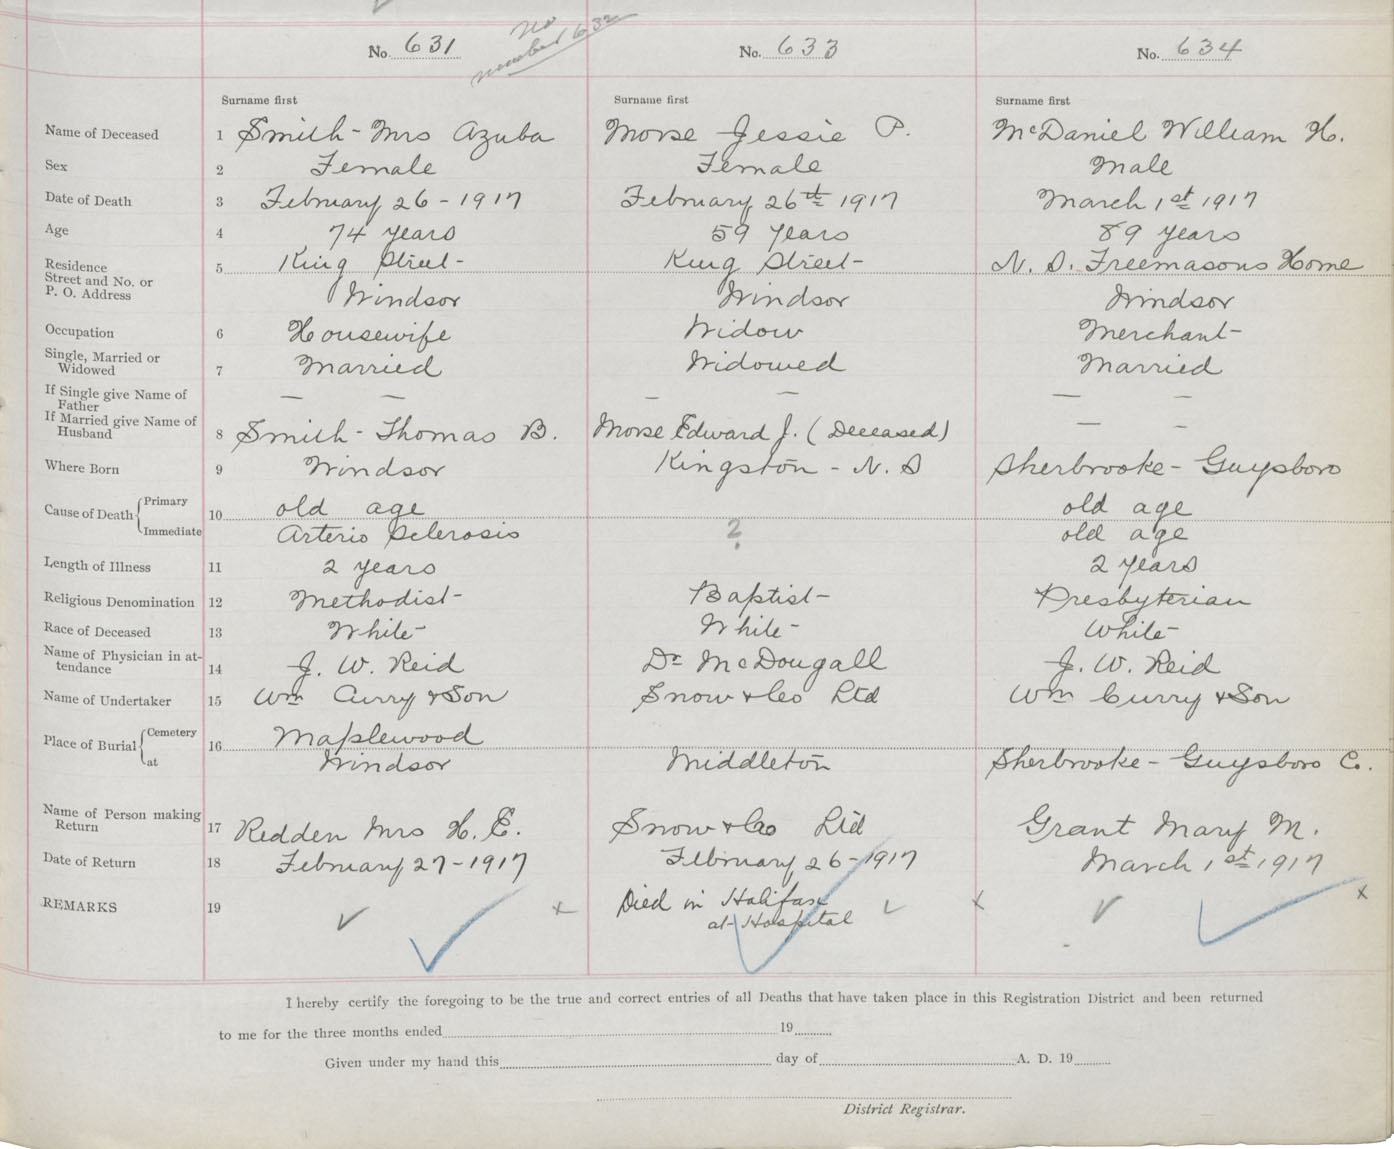 No. 631 No number 632 No. 633 No. 634
Surname first Surname first Surname first
Name of Deceased 1 Smith - Mrs Azuba Morse Jessie P. McDaniel William H.
Sex 2 Female Female Male
Date of Death 3 February 26 - 1917 February 26th 1917 March 1st 1917
Age 4 74 years 59 years 89 years
Residence Street and No. or P. O. Address 5 King Street King Street N. S. Freemasons Home
Windsor Windsor Windsor
Occupation 6 Housewife Widow Merchant
Single, Married or Widowed 7 Married Widowed Married
If Single give Name of Father — — — — — —
If Married give Name of Husband 8 Smith - Thomas B. Morse Edward J. (Deceased) — —
Where Born 9 Windsor Kingston - N. S Sherbrooke - Guysboro
Cause of Death Primary 10 old age old age
Immediate Arterio Sclerosis ? old age
Length of Illness 11 2 years 2 years
Religious Denomination 12 Methodist Baptist Presbyterian
Race of Deceased 13 White White White
Name of Physician in attendance 14 J. W. Reid Dr McDougall J. W. Reid
Name of Undertaker 15 Wm Curry & Son Snow & Co Ltd Wm Curry & Son
Place of Burial Cemetery 16 Maplewood
at Windsor Middleton Sherbrooke - Guysboro Co.
Name of Person making Return 17 Redden Mrs H. E. Snow & Co Ltd Grant Mary M.
Date of Return 18 February 27 - 1917 February 26 - 1917 March 1st 1917
REMARKS 19 Died in Halifax
at Hospital
I hereby certify the foregoing to be the true and correct entries of all Deaths that have taken place in this Registration District and been returned
to me for the three months ended 19
Given under my hand this day of A. D. 19
District Registrar.